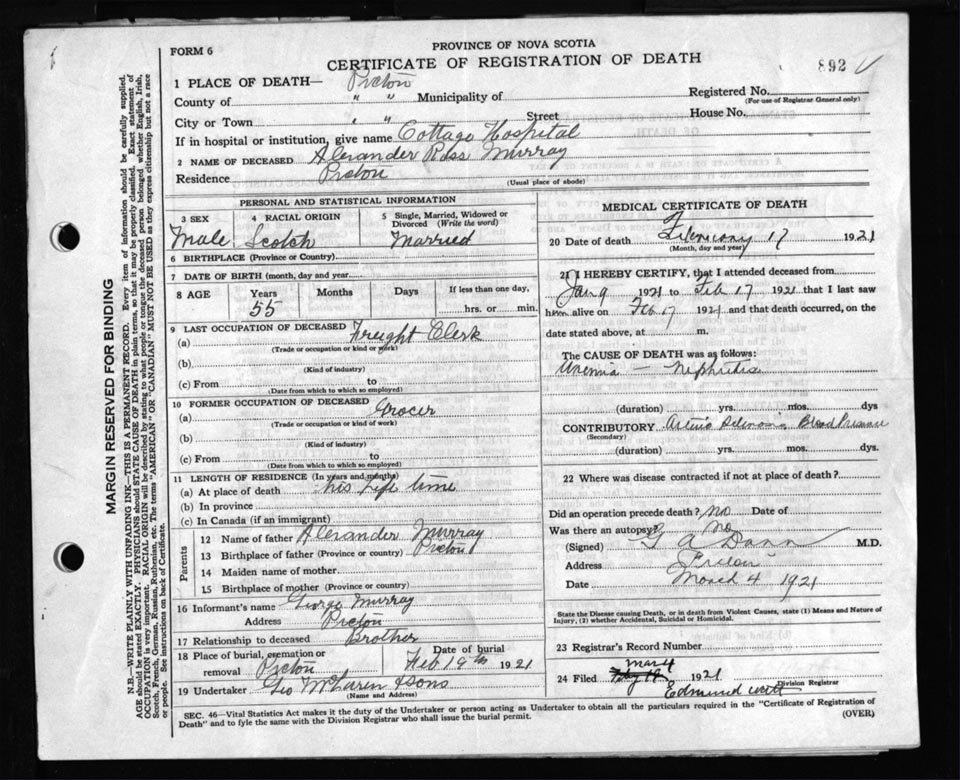 FORM 6
PROVINCE OF NOVA SCOTIA
CERTIFICATE OF REGISTRATION OF DEATH
892
1 PLACE OF DEATH— Pictou
Registered No.
(For use of Registrar General only)
County of " " Municipality of
House No.
City or Town " " Street
If in hospital or institution, give name Cottage Hospital
2 NAME OF DECEASED Alexander Ross Murray
Residence Pictou
(Usual place of abode)
PERSONAL AND STATISTICAL INFORMATION
3 SEX 4 RACIAL ORIGIN 5 Single, Married, Widowed or Divorced (Write the word)
Male Scotch Married
6 BIRTHPLACE (Province or Country)
7 DATE OF BIRTH (month, day and year)
8 AGE Years Months Days If less than one day,
55 hrs. or min.
9 LAST OCCUPATION OF DECEASED
(a) Freight Clerk
(Trade or occupation or kind of work)
(b)
(Kind of industry)
(c) From to
(Date from which to which so employed)
10 FORMER OCCUPATION OF DECEASED
(a) Grocer
(Trade or occupation or kind of work)
(b)
(Kind of industry)
(c) From to
(Date from which to which so employed)
11 LENGTH OF RESIDENCE (In years and months)
(a) At place of death his Life time
(b) In province
(c) In Canada (if an immigrant)
Parents
12 Name of father Alexander Murray
13 Birthplace of father (Province or country) Pictou
14 Maiden name of mother
15 Birthplace of mother (Province or country)
16 Informant's name George Murray
Address Pictou
17 Relationship to deceased Brother
18 Place of burial, cremation or removal Pictou
Date of burial
Feb 19th 1921
19 Undertaker Geo McLaren & Sons
(Name and Address)
MEDICAL CERTIFICATE OF DEATH
20 Date of death February 17 1921
(Month, day and year)
21 I HEREBY CERTIFY, that I attended deceased from
Jan 9 1921 to Feb 17 1921 that I last saw
him alive on Feb 17 1921 and that death occurred, on the
date stated above, at m.
The CAUSE OF DEATH was as follows:
Uremia — Nephritis
(duration) yrs. mos. dys
CONTRIBUTORY Blood Pressure
(Secondary)
(duration) yrs. mos. dys.
22 Where was disease contracted if not at place of death?
Did an operation precede death? no Date of
Was there an autopsy? no
(Signed) M.D.
Address Pictou
Date March 4 1921
State the Disease causing Death, or in death from Violent Causes, state (1) Means and Nature of Injury, (2) whether Accidental, Suicidal or Homicidal.
23 Registrar's Record Number
Mar 4
24 Filed 1921
Division Registrar
SEC. 46—Vital Statistics Act makes it the duty of the Undertaker or person acting as Undertaker to obtain all the particulars required in the "Certificate of Registration of
Death" and to fyle the same with the Division Registrar who shall issue the burial permit.
(OVER)
MARGIN RESERVED FOR BINDING
N.B.—WRITE PLAINLY WITH UNFADING INK—THIS IS A PERMANENT RECORD. Every item of information should be carefully supplied.
AGE should be stated EXACTLY. PHYSICIANS should STATE CAUSE OF DEATH in plain terms, so that it may be properly classified. Exact statement of
OCCUPATION is very important. RACIAL ORIGIN will be described by stating to what people or tongue the deceased person belonged whether English, Irish,
Scotch, French, German, Russian, Ruthenian, etc. The terms "AMERICAN" OR "CANADIAN" MUST NOT BE USED as they express citizenship but not a race
or people. See instructions on back of Certificate.